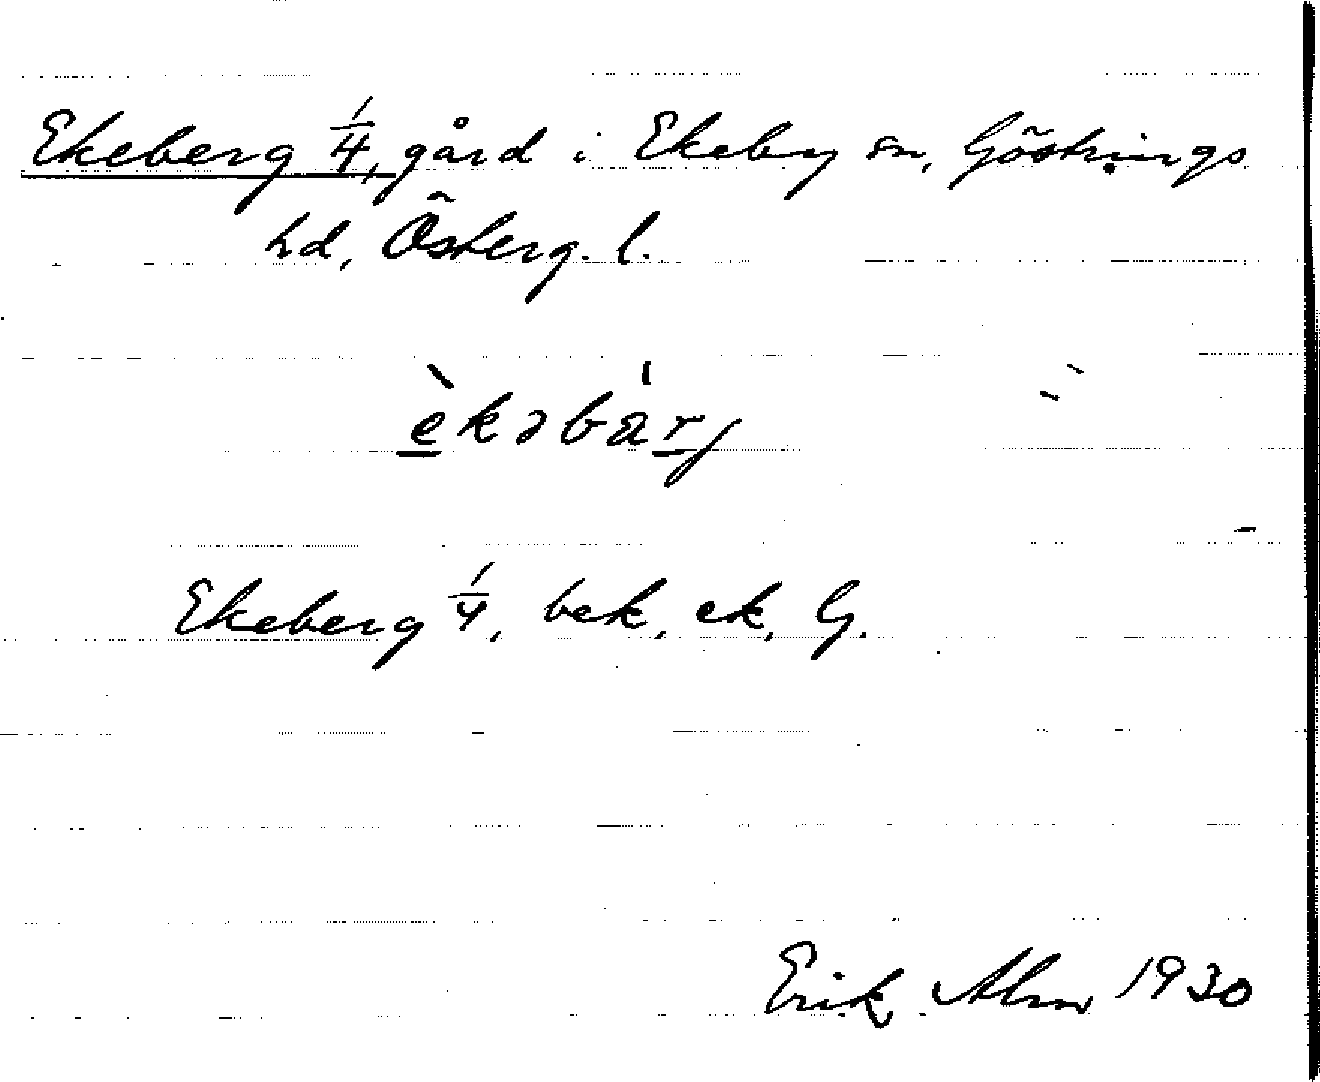 Ekeberg 1/4, gård i Ekeby sn, Göstrings
hd, Österg. l.
è̱kəbáṟj
Ekeberg 1/4, bek, ek, G.
Erik Alm 1930